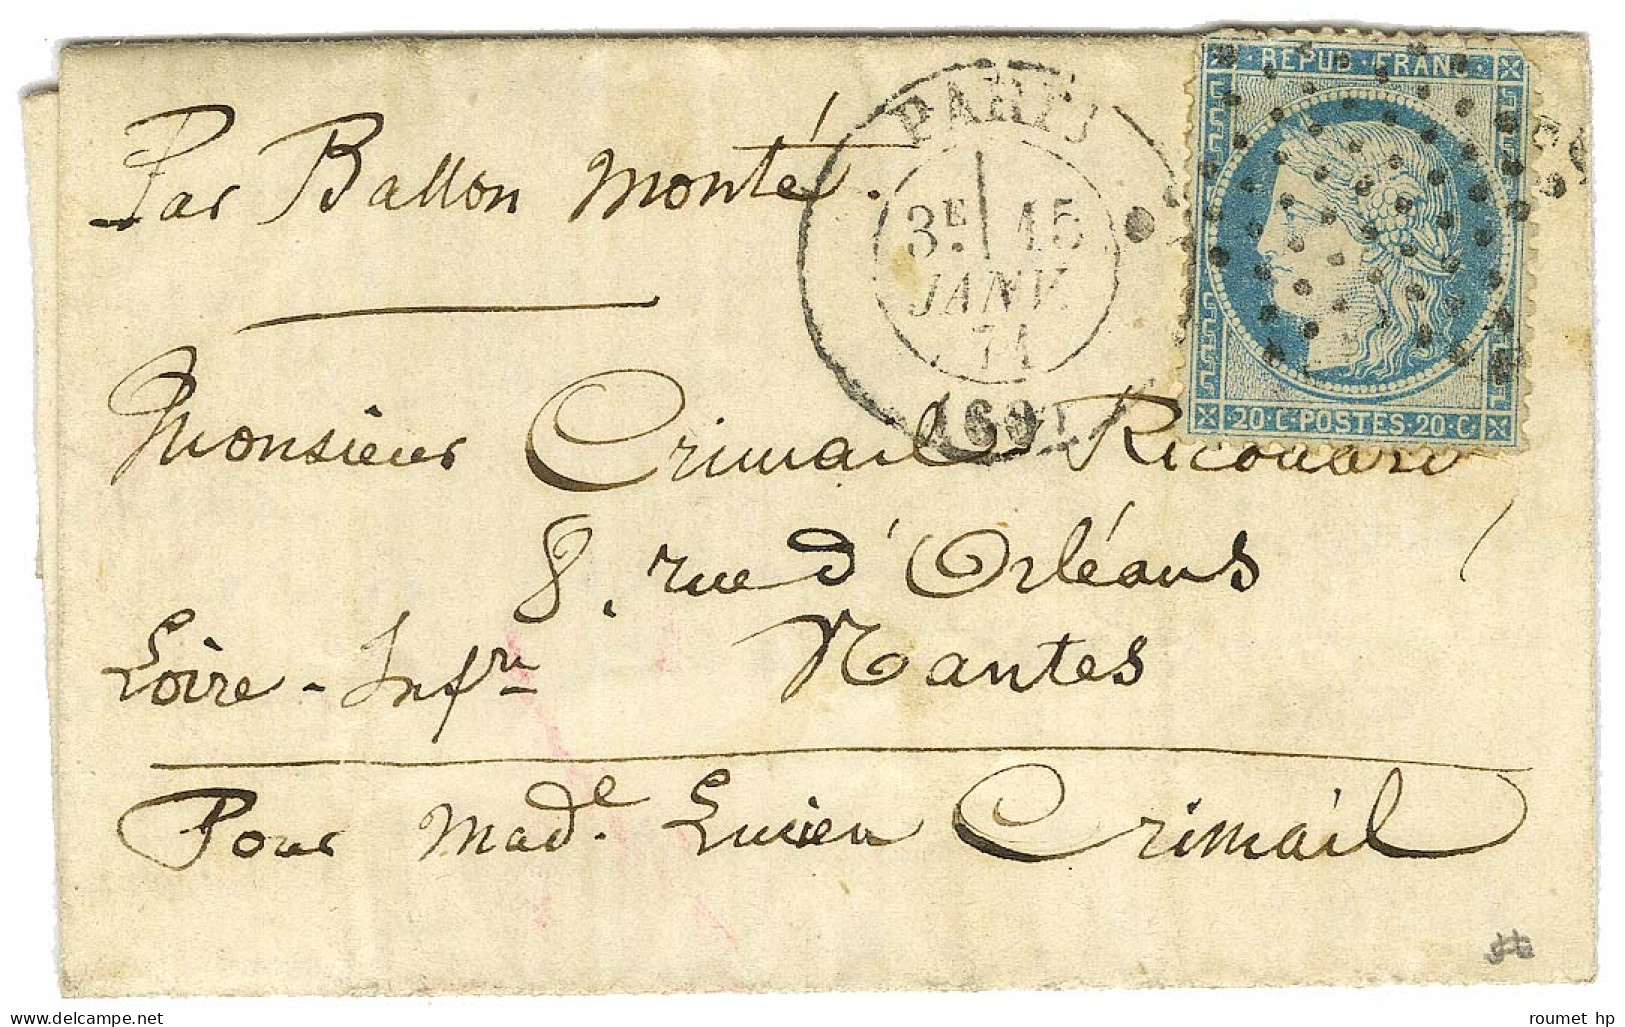 REPUB·FRANC
PARIS
Par Ballon monté.
3E 15
JANV.
71
(60)
20·C·POSTES·20·C·
Monsieur Crimail Ricouard
8, rue d'Orléans
Loire-Infre Nantes
Pour Made Lucien Crimail
roumet hp